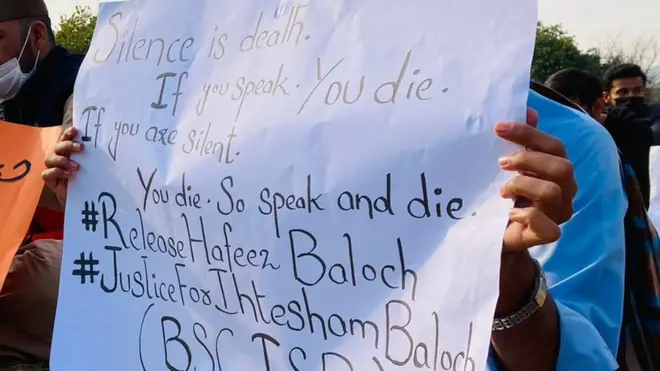 Silence is death.
If you speak. You die.
If you are silent.
You die. So speak and die.
#ReleaseHafeez Baloch
#JusticeForIhtesham Baloch
(BSC